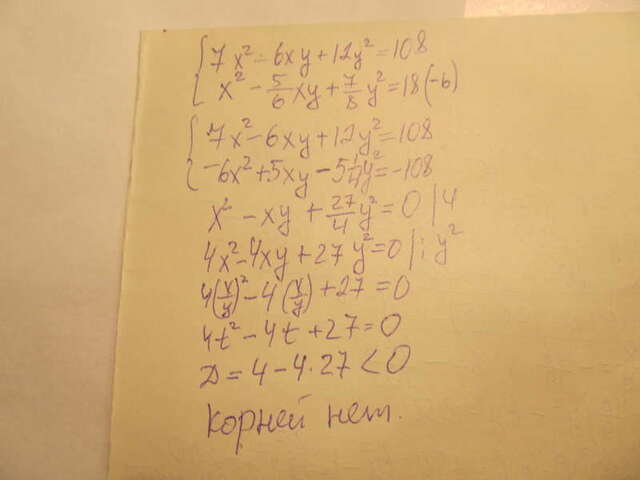 7x² - 6xy + 12y² = 108
x² - 5/6 xy + 7/8 y² = 18 (-6)
7x² - 6xy + 12y² = 108
-6x² + 5xy - 5 1/4 y² = -108
x² - xy + 27/4 y² = 0 | 4
4x² - 4xy + 27y² = 0 | : y²
4(x/y)² - 4(x/y) + 27 = 0
4t² - 4t + 27 = 0
D = 4 - 4·27 < 0
корней нет.